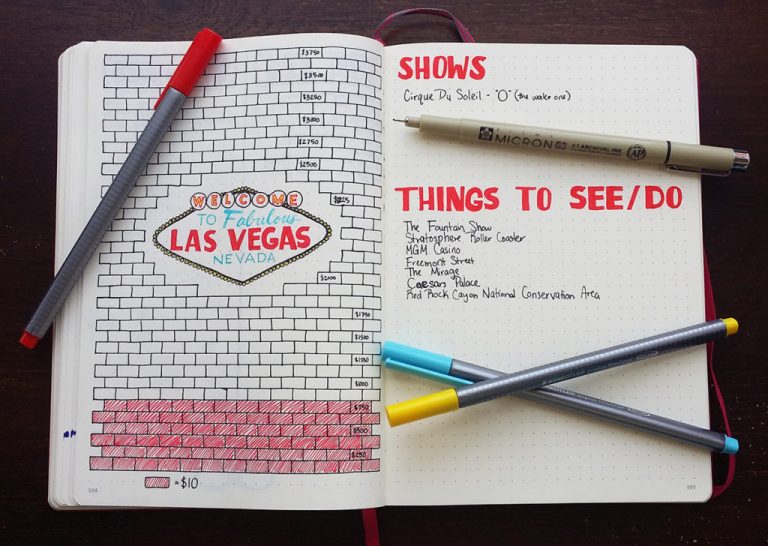 $3750
$3500
$3250
$3000
$2750
$2500
WELCOME
TO Fabulous
LAS VEGAS
NEVADA
$2000
$1750
$1500
$1250
$1000
$750
$500
$250
= $10
104
SHOWS
Cirque Du Soleil - "O" (the water one)
MICRON ARCHIVAL INK AP
THINGS TO SEE/DO
The Fountain Show
Stratosphere Roller Coaster
MGM Casino
Freemont Street
The Mirage
Caesars Palace
Red Rock Cayon National Conservation Area
STAEDTLER
105